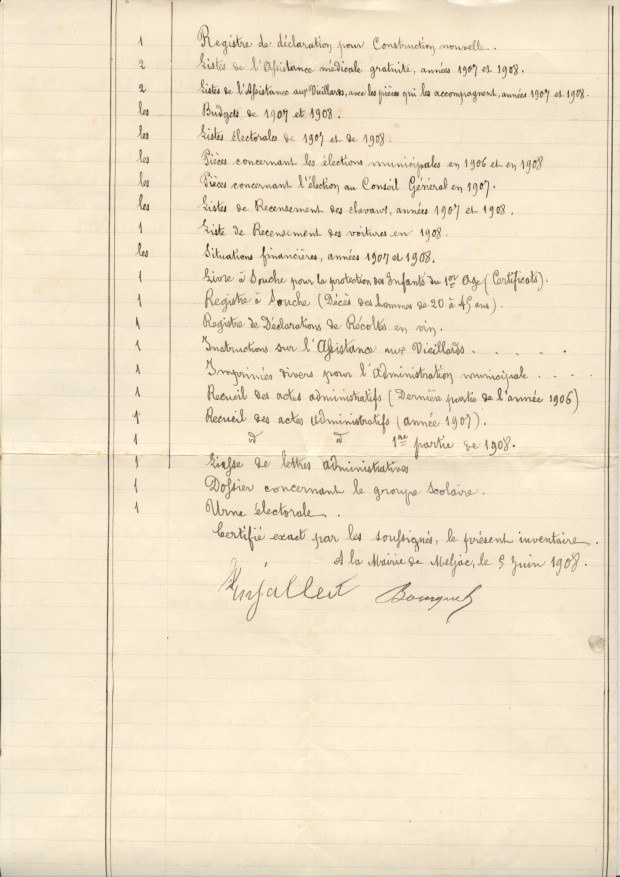 1 Registre de déclaration pour Construction nouvelle.
2 Listes de l'Assistance médicale gratuite, années 1907 et 1908.
2 Listes de l'Assistance aux Vieillards, avec les pièces qui les accompagnent, années 1907 et 1908.
les Budgets de 1907 et 1908.
les Listes électorales de 1907 et de 1908.
les Pièces concernant les élections municipales en 1906 et en 1908
les Pièces concernant l'élection au Conseil Général en 1907.
les Listes de Recensement des chevaux, années 1907 et 1908.
1 Liste de Recensement des voitures en 1908.
les Situations financières, années 1907 et 1908.
1 Livre à Souche pour la protection des Enfants du 1er Age (Certificats).
1 Registre à Souche (Décès des hommes de 20 à 45 ans).
1 Registre de Déclarations de Récoltes en vin.
1 Instructions sur l'Assistance aux Vieillards. . . . .
1 Imprimés divers pour l'Administration municipale . . . .
1 Recueil des actes administratifs (Dernière partie de l'année 1906)
1 Recueil des actes administratifs (année 1907).
1 d° d° 1re partie de 1908.
1 Liasse de lettres administratives
1 Dossier concernant le groupe scolaire.
1 Urne électorale.
Certifié exact par les soussignés, le présent inventaire.
A la Mairie de Meljac, le 5 Juin 1908.
Bousquet